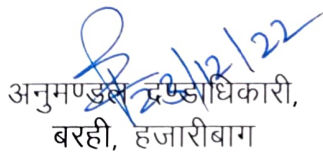 23/12/22
अनुमण्डल दण्डाधिकारी,
बरही, हजारीबाग